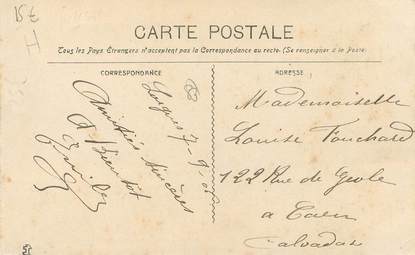 15 €
CARTE POSTALE
Tous les Pays Étrangers n'acceptent pas la Correspondance au recto. (Se renseigner à la Poste)
CORRESPONDANCE
ADRESSE
Amitiés sincères
A Bientôt
Mademoiselle
Louise Fouchard
122 Rue de Geole
a Caen
Calvados